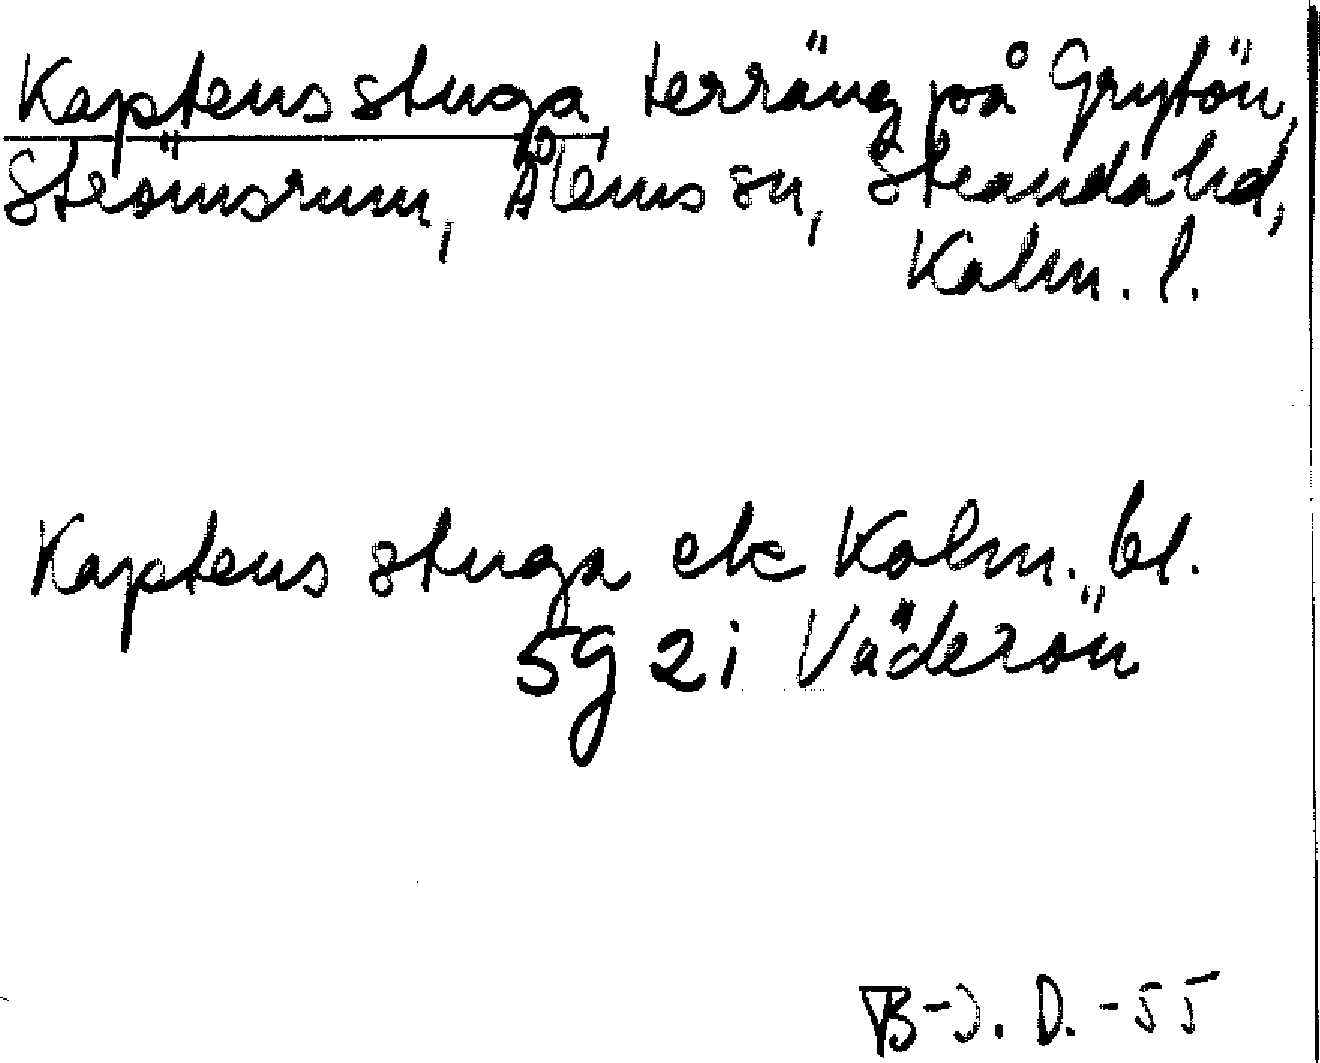 Kaptens stuga, terräng på Grytön,
Strömsrum, Ålems sn, Stranda hd,
Kalm. l.
Kaptens stuga ek Kalm. bl.
5g 2i Väderön
B-J. D. -55